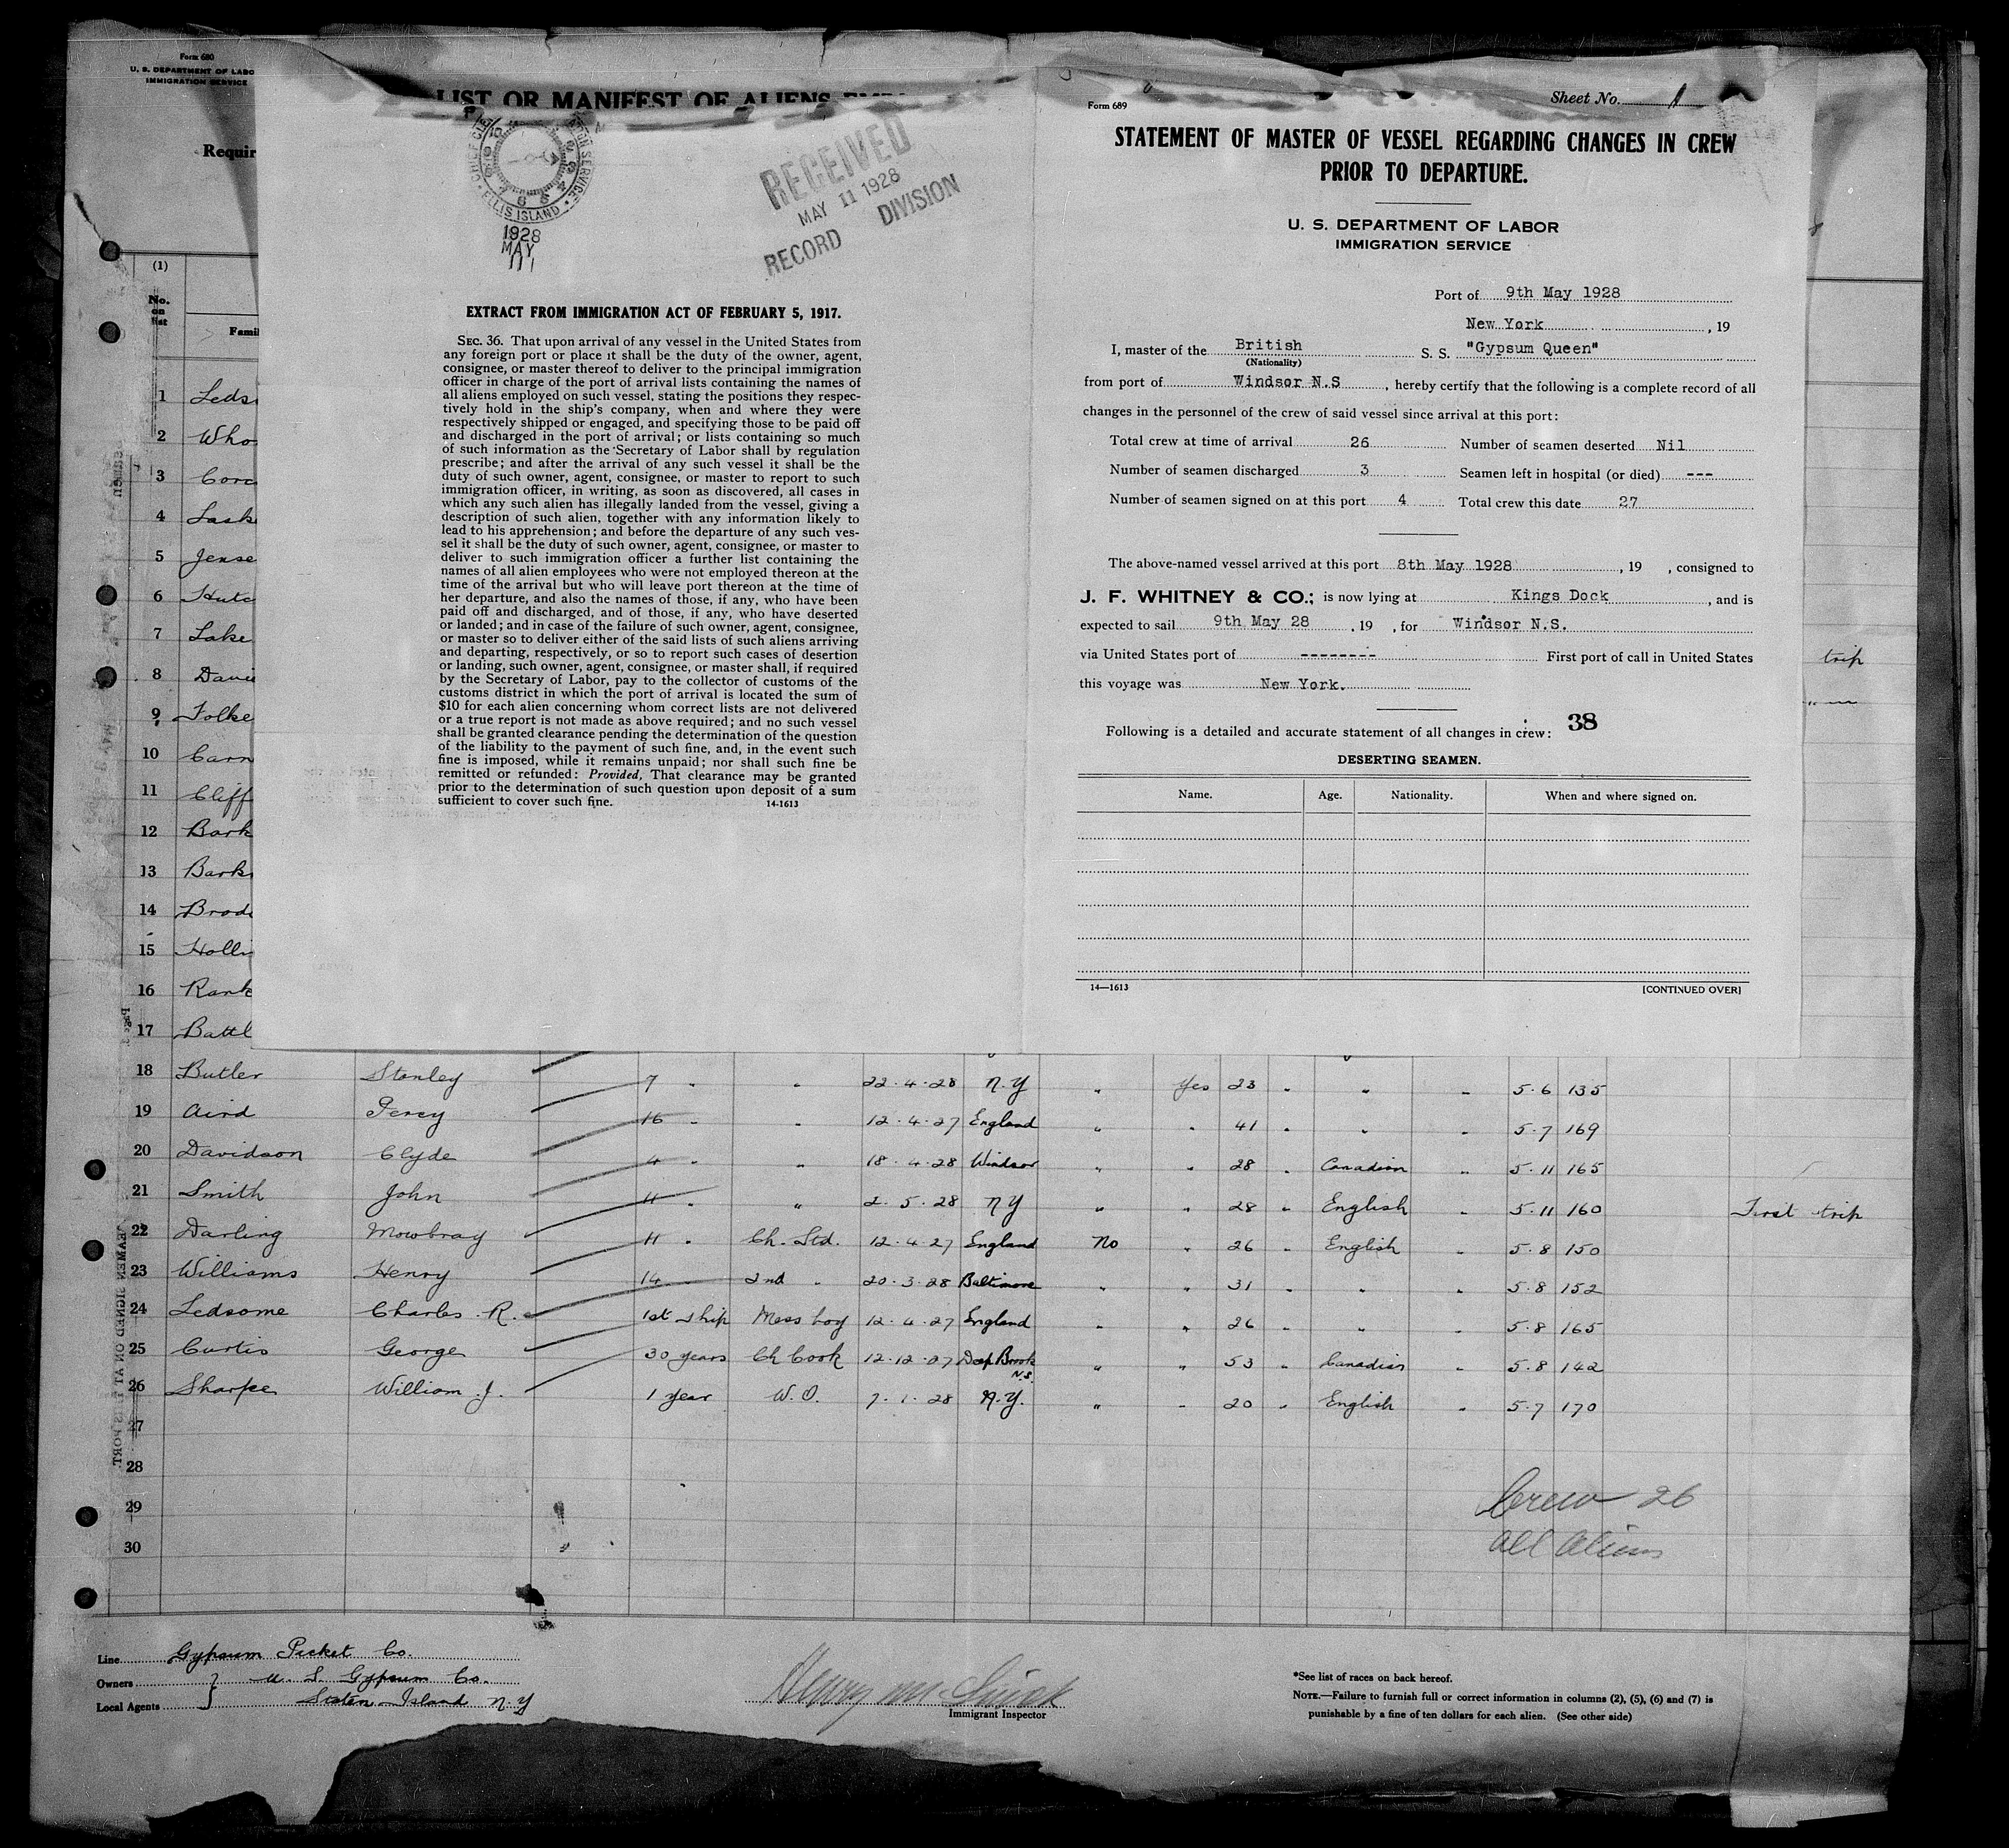 Form 680
U. S. DEPARTMENT OF LABO
IMMIGRATION SERVICE
LIST OR MANIFEST OF ALIENS EMP
Requir
(1)
No. on list
Famil
1 Leds
2 Who
3 Corc
4 Lask
5 Jense
6 Hutc
7 Lake
8 Davi
9 Folke
10 Carn
11 Cliff
12 Bark
13 Bark
14 Brod
15 Holli
16 Rank
17 Battl
ELLIS ISLAND
1928
MAY
11
RECEIVED
MAY 11 1928
RECORD DIVISION
EXTRACT FROM IMMIGRATION ACT OF FEBRUARY 5, 1917.
SEC. 36. That upon arrival of any vessel in the United States from
any foreign port or place it shall be the duty of the owner, agent,
consignee, or master thereof to deliver to the principal immigration
officer in charge of the port of arrival lists containing the names of
all aliens employed on such vessel, stating the positions they respec-
tively hold in the ship's company, when and where they were
respectively shipped or engaged, and specifying those to be paid off
and discharged in the port of arrival; or lists containing so much
of such information as the Secretary of Labor shall by regulation
prescribe; and after the arrival of any such vessel it shall be the
duty of such owner, agent, consignee, or master to report to such
immigration officer, in writing, as soon as discovered, all cases in
which any such alien has illegally landed from the vessel, giving a
description of such alien, together with any information likely to
lead to his apprehension; and before the departure of any such ves-
sel it shall be the duty of such owner, agent, consignee, or master to
deliver to such immigration officer a further list containing the
names of all alien employees who were not employed thereon at the
time of the arrival but who will leave port thereon at the time of
her departure, and also the names of those, if any, who have been
paid off and discharged, and of those, if any, who have deserted
or landed; and in case of the failure of such owner, agent, consignee,
or master so to deliver either of the said lists of such aliens arriving
and departing, respectively, or so to report such cases of desertion
or landing, such owner, agent, consignee, or master shall, if required
by the Secretary of Labor, pay to the collector of customs of the
customs district in which the port of arrival is located the sum of
$10 for each alien concerning whom correct lists are not delivered
or a true report is not made as above required; and no such vessel
shall be granted clearance pending the determination of the question
of the liability to the payment of such fine, and, in the event such
fine is imposed, while it remains unpaid; nor shall such fine be
remitted or refunded: Provided, That clearance may be granted
prior to the determination of such question upon deposit of a sum
sufficient to cover such fine. 14-1613
Form 689
Sheet No. 1
STATEMENT OF MASTER OF VESSEL REGARDING CHANGES IN CREW
PRIOR TO DEPARTURE.
U. S. DEPARTMENT OF LABOR
IMMIGRATION SERVICE
Port of 9th May 1928
New York , 19
I, master of the British S. S. "Gypsum Queen"
(Nationality)
from port of Windsor N.S , hereby certify that the following is a complete record of all
changes in the personnel of the crew of said vessel since arrival at this port:
Total crew at time of arrival 26 Number of seamen deserted Nil
Number of seamen discharged 3 Seamen left in hospital (or died) ---
Number of seamen signed on at this port 4 Total crew this date 27
The above-named vessel arrived at this port 8th May 1928 , 19 , consigned to
J. F. WHITNEY & CO.; is now lying at Kings Dock , and is
expected to sail 9th May 28 , 19 , for Windsor N.S.
via United States port of -------- First port of call in United States
this voyage was New York.
Following is a detailed and accurate statement of all changes in crew: 38
DESERTING SEAMEN.
Name. Age. Nationality. When and where signed on.
14—1613 [CONTINUED OVER]
trip
18 Butler Stanley 7 " " 22.4.28 N.Y " Yes 23 " " " 5.6 135
19 Aird Percy 16 " " 12.4.27 England " " 41 " " " 5.7 169
20 Davidson Clyde 4 " " 18.4.28 Windsor " " 28 " Canadian " 5.11 165
21 Smith John 11 " " 2.5.28 NY " " 28 " English " 5.11 160 First trip
22 Darling Mowbray 11 " Ch. Std. 12.4.27 England No " 26 " English " 5.8 150
23 Williams Henry 14 " 2nd " 20.3.28 Baltimore " " 31 " " " 5.8 152
24 Ledsome Charles R. 1st ship Mess boy 12.4.27 England " " 26 " " " 5.8 165
25 Curtis George 30 years Ch Cook 12.12.27 Deep Brook N.S. " " 53 " Canadian " 5.8 142
26 Sharpe William J. 1 year W.O. 7.1.28 N.Y. " " 20 " English " 5.7 170
27
28
29
30
Crew 26
All Aliens
Line Gypsum Packet Co.
Owners U. S. Gypsum Co.
Local Agents Staten Island N.Y
Immigrant Inspector
*See list of races on back hereof.
NOTE.—Failure to furnish full or correct information in columns (2), (5), (6) and (7) is
punishable by a fine of ten dollars for each alien. (See other side)